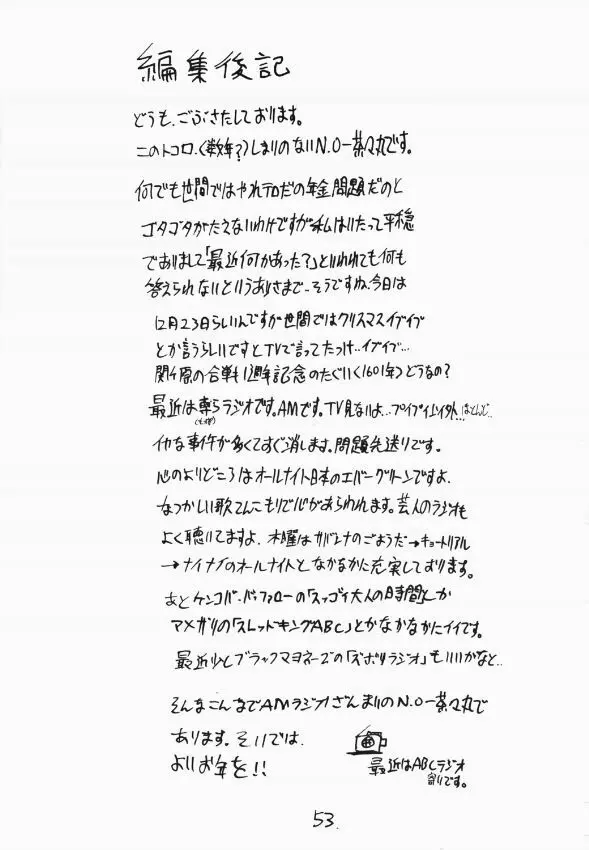 編集後記
どうも、ごぶさたしております。
このトコロ、(数年?)しまりのないN.O-茶々丸です。
何でも世間ではやれテロだの年金問題だのと
ゴタゴタがたえないわけですが私はいたって平穏
でありまして「最近何かあった?」といわれても何も
答えられないというありさまで..そうですね、今日は
12月23日らしいんですが世間ではクリスマスイブイブ
とか言うらしいですとTVで言ってたっけ..イブイブ...
関ヶ原の合戦1周年記念のたぐい(1601年)どうなの?
最近は専らラジオです。AMです。TV見ないよ...
イヤな事件が多くてすぐ消します。問題先送りです。
心のよりどころはオールナイト日本のエバーグリーンですよ、
なつかしい歌てんこもりで心があらわれます。芸人のラジオも
よく聴いてますよ、木曜はサバンナのごようだ→キョートリアル
→ナイナイのオールナイトとなかなかに充実しております。
あとケンコバ・バッファローの「スッゴイ大人の時間」とか
アメザリの「スレッドキングABC」とかなかなかにイイです。
最近少しブラックマヨネーズの「ズボリラジオ」もいいかなと..
そんなこんなでAMラジオざんまいのN.O-茶々丸で
あります。それでは、
よいお年を!!
最近はABCラジオ
寄りです。
53.